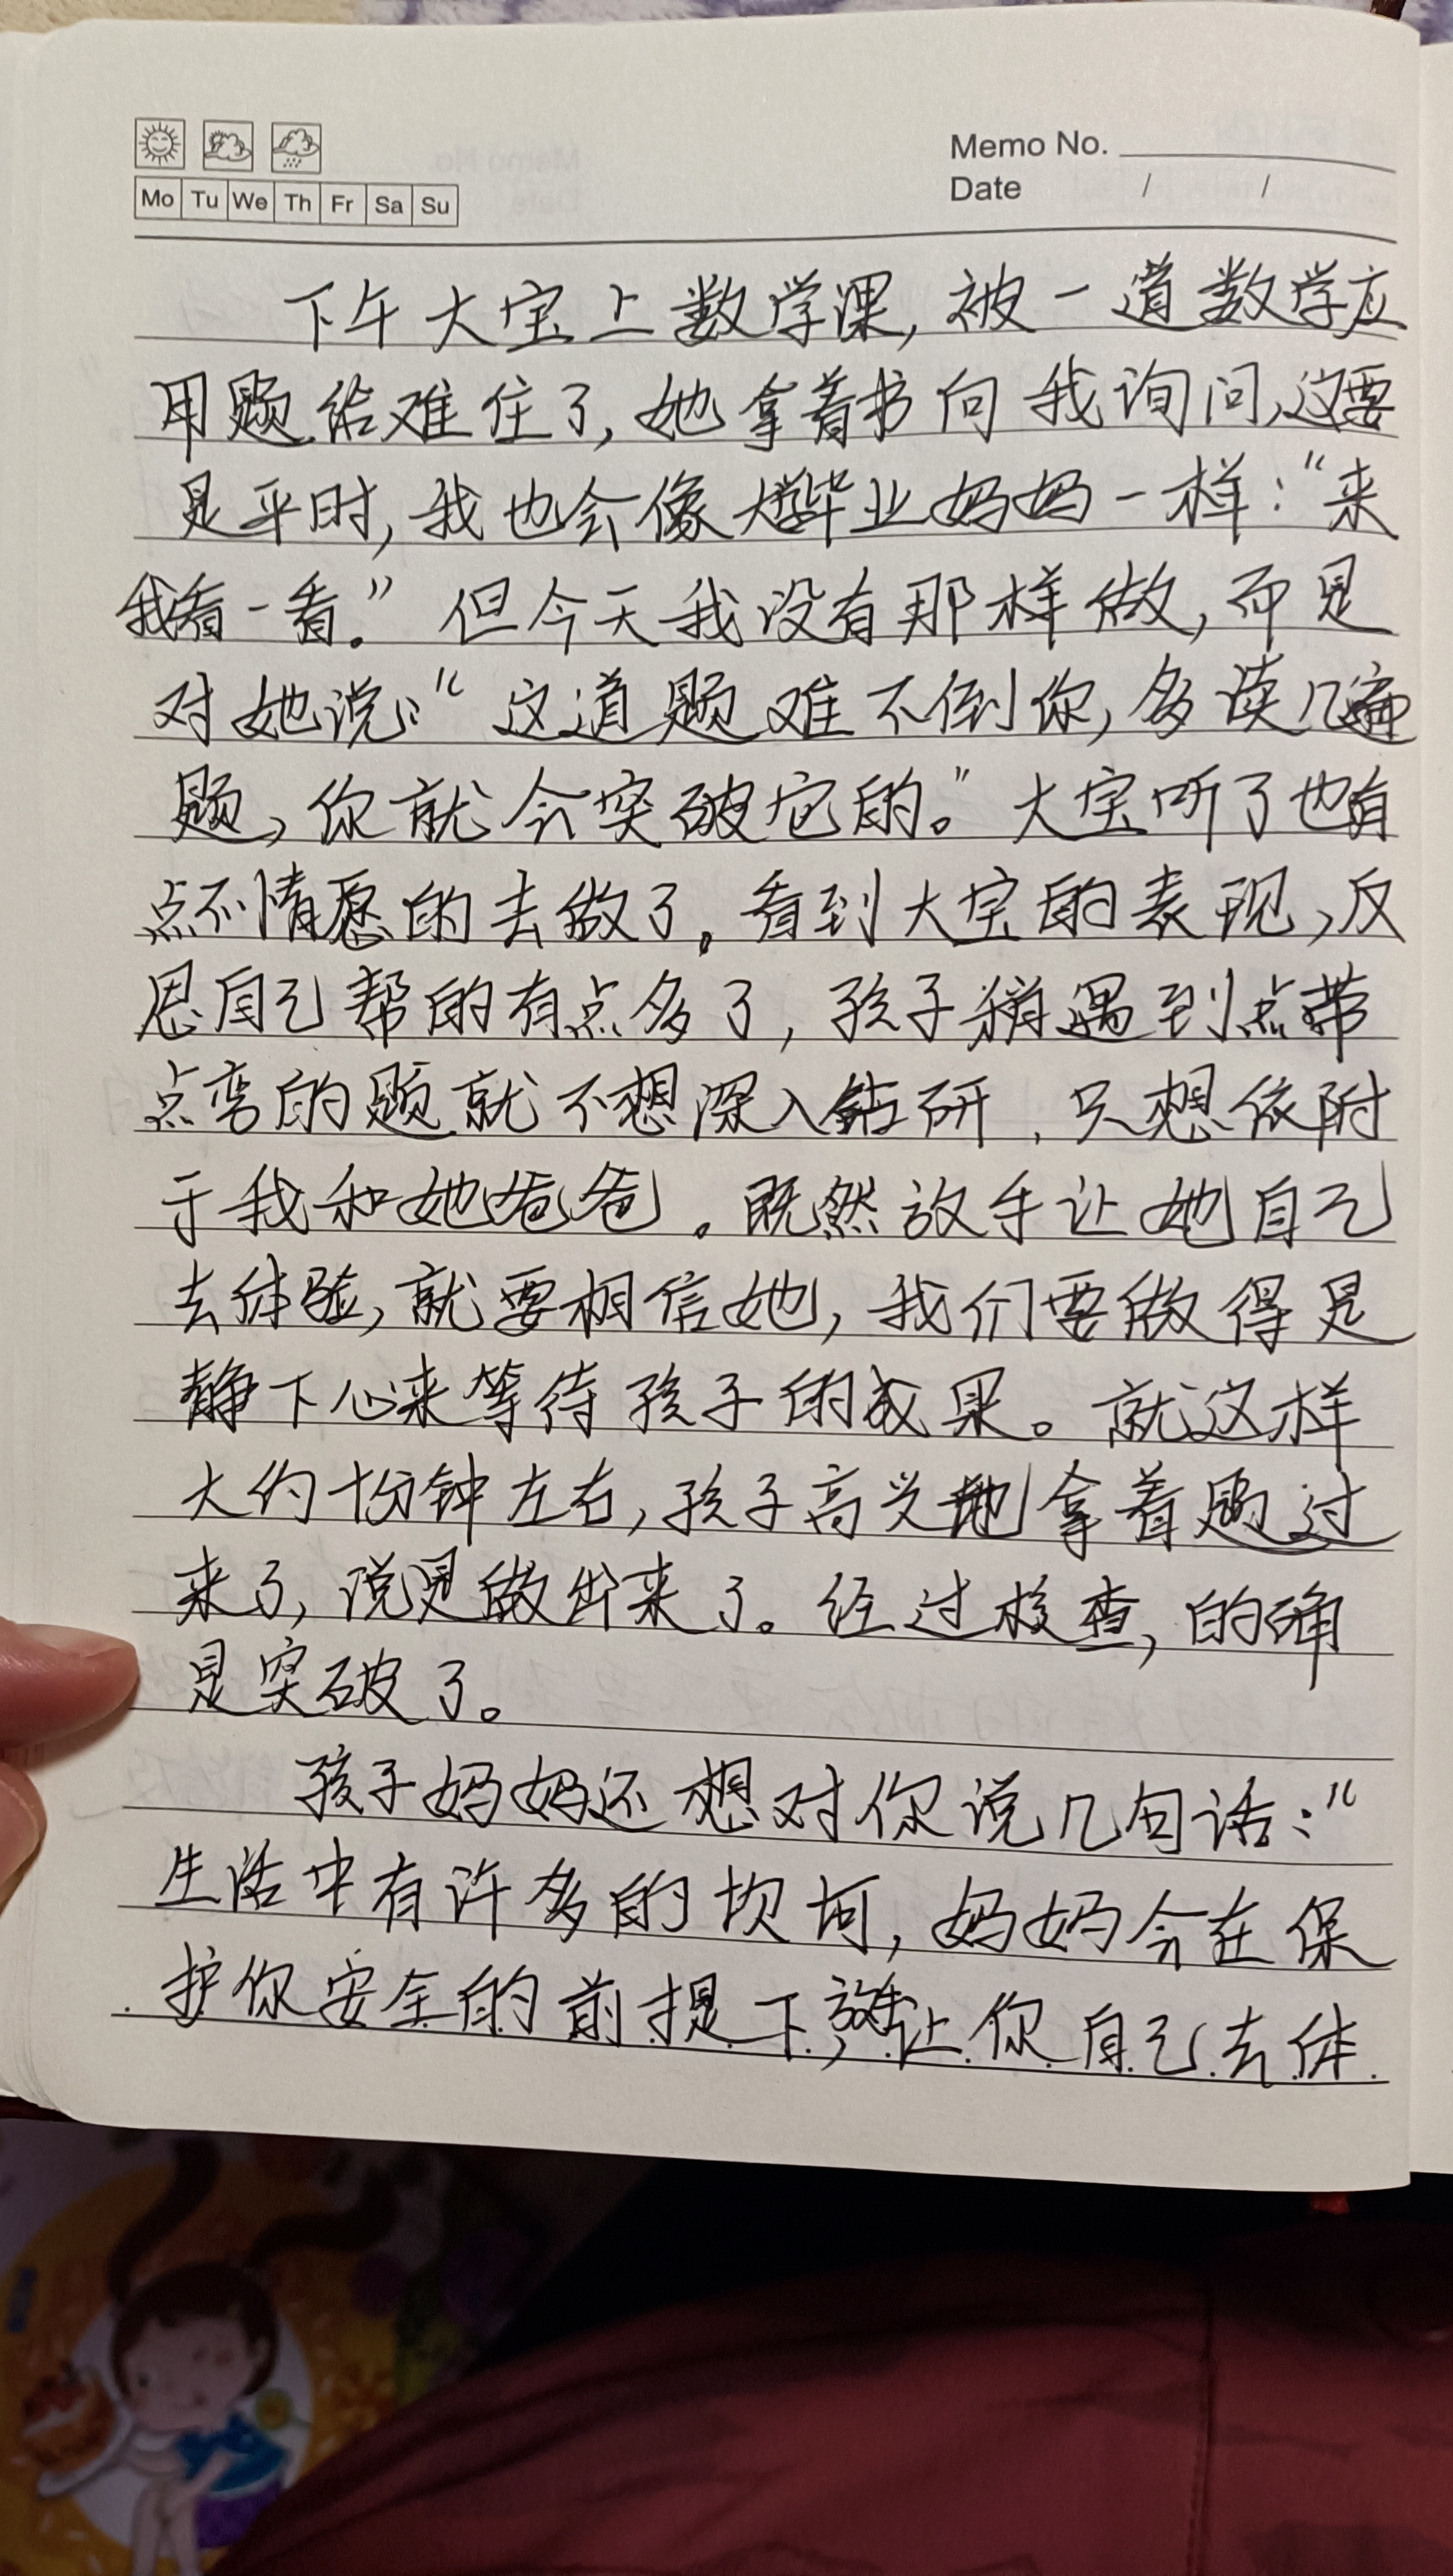 Memo No.
Mo Tu We Th Fr Sa Su
Date / /
下午大宝上数学课,被一道数学应
用题给难住了,她拿着书向我询问,这要
是平时,我也会像大学毕业妈妈一样:“来
我看一看。”但今天我没有那样做,而是
对她说:“这道题难不倒你,多读几遍
题,你就会突破它的。”大宝听了也有
点不情愿的去做了。看到大宝的表现,反
思自己帮的有点多了,孩子稍遇到点带
点弯的题就不想深入钻研,只想依附
于我和她爸爸。既然放手让她自己
去体验,就要相信她,我们要做得是
静下心来等待孩子的成果。就这样
大约十分钟左右,孩子高兴地拿着题过
来了,说是做出来了。经过检查,的确
是突破了。
孩子妈妈还想对你说几句话:“
生活中有许多的坎坷,妈妈会在保
护你安全的前提下,放手让你自己去体